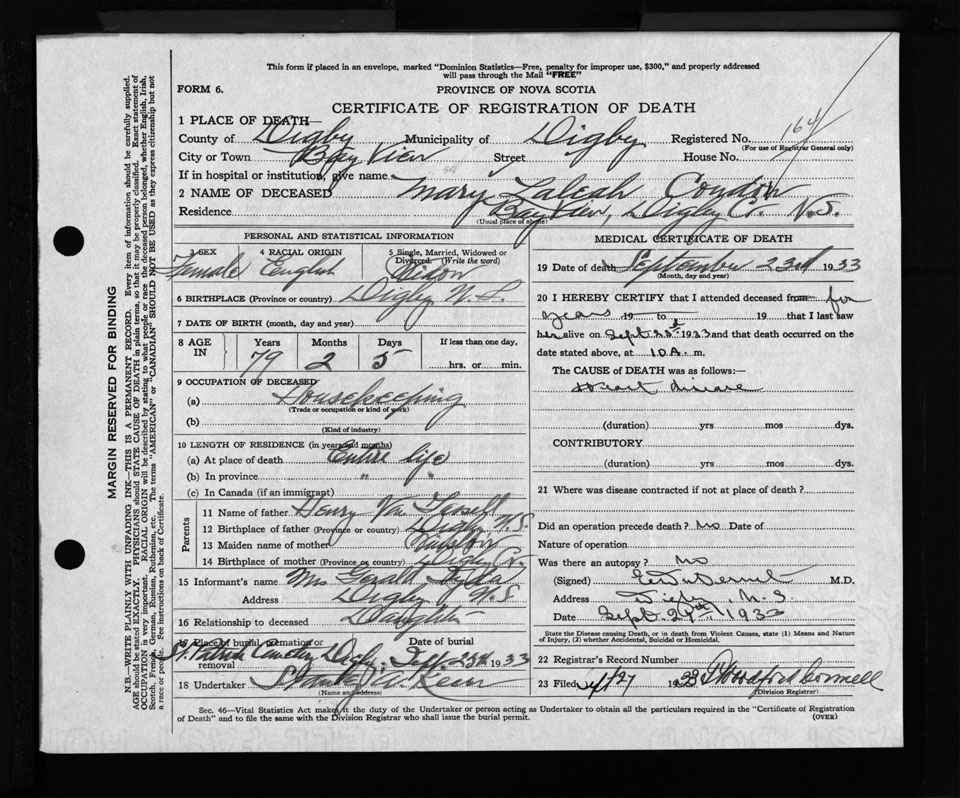 This form if placed in an envelope, marked "Dominion Statistics—Free, penalty for improper use, $300," and properly addressed
will pass through the Mail "FREE"
FORM 6.
PROVINCE OF NOVA SCOTIA
CERTIFICATE OF REGISTRATION OF DEATH
1 PLACE OF DEATH—
County of Digby Municipality of Digby Registered No. 164
(For use of Registrar General only)
City or Town Bay View Street House No.
If in hospital or institution, give name
2 NAME OF DECEASED Mary
Residence Bay View, Digby Co. N.S.
(Usual place of abode)
PERSONAL AND STATISTICAL INFORMATION
3 SEX 4 RACIAL ORIGIN 5 Single, Married, Widowed or Divorced. (Write the word)
Female English Widow
6 BIRTHPLACE (Province or country) Digby N.S.
7 DATE OF BIRTH (month, day and year)
8 AGE IN Years Months Days If less than one day,
79 2 5 hrs. or min.
9 OCCUPATION OF DECEASED
(a) Housekeeping
(Trade or occupation or kind of work)
(b)
(Kind of industry)
10 LENGTH OF RESIDENCE (in years and months)
(a) At place of death Entire life
(b) In province " "
(c) In Canada (if an immigrant)
Parents
11 Name of father Henry Van Tassell
12 Birthplace of father (Province or country) Digby N.S.
13 Maiden name of mother
14 Birthplace of mother (Province or country) Digby
15 Informant's name Mrs
Address Digby N.S
16 Relationship to deceased Daughter
17 Place of burial, cremation or removal Date of burial
St. Patrick Cemetery Digby Sept 25th 1933
18 Undertaker Stanley
(Name and address)
MEDICAL CERTIFICATE OF DEATH
19 Date of death September 23rd 1933
(Month, day and year)
20 I HEREBY CERTIFY that I attended deceased from for
years 19 to 19 that I last saw
her alive on Sept 23rd 1933 and that death occurred on the
date stated above, at 10 A. m.
The CAUSE OF DEATH was as follows:
Heart disease
(duration) yrs mos dys.
CONTRIBUTORY
(duration) yrs mos dys.
21 Where was disease contracted if not at place of death?
Did an operation precede death? no Date of
Nature of operation
Was there an autopsy? no
(Signed) M.D.
Address Digby, N.S
Date Sept. 24th 1933
State the Disease causing Death, or in death from Violent Causes, state (1) Means and Nature of Injury, (2) whether Accidental, Suicidal or Homicidal.
22 Registrar's Record Number
23 Filed Sept 27 1933
(Division Registrar)
Sec. 46—Vital Statistics Act makes it the duty of the Undertaker or person acting as Undertaker to obtain all the particulars required in the "Certificate of Registration
of Death" and to file the same with the Division Registrar who shall issue the burial permit.
(OVER)
MARGIN RESERVED FOR BINDING
N.B.—WRITE PLAINLY WITH UNFADING INK—THIS IS A PERMANENT RECORD. Every item of information should be carefully supplied.
AGE should be stated EXACTLY. PHYSICIANS should STATE CAUSE OF DEATH in plain terms, so that it may be properly classified. Exact statement of
OCCUPATION is very important. RACIAL ORIGIN will be described by stating to what people or race the deceased person belonged, whether English, Irish,
Scotch, French, German, Russian, Ruthenian, etc. The terms "AMERICAN" or "CANADIAN" SHOULD NOT BE USED as they express citizenship but not
a race or people. See instructions on back of Certificate.